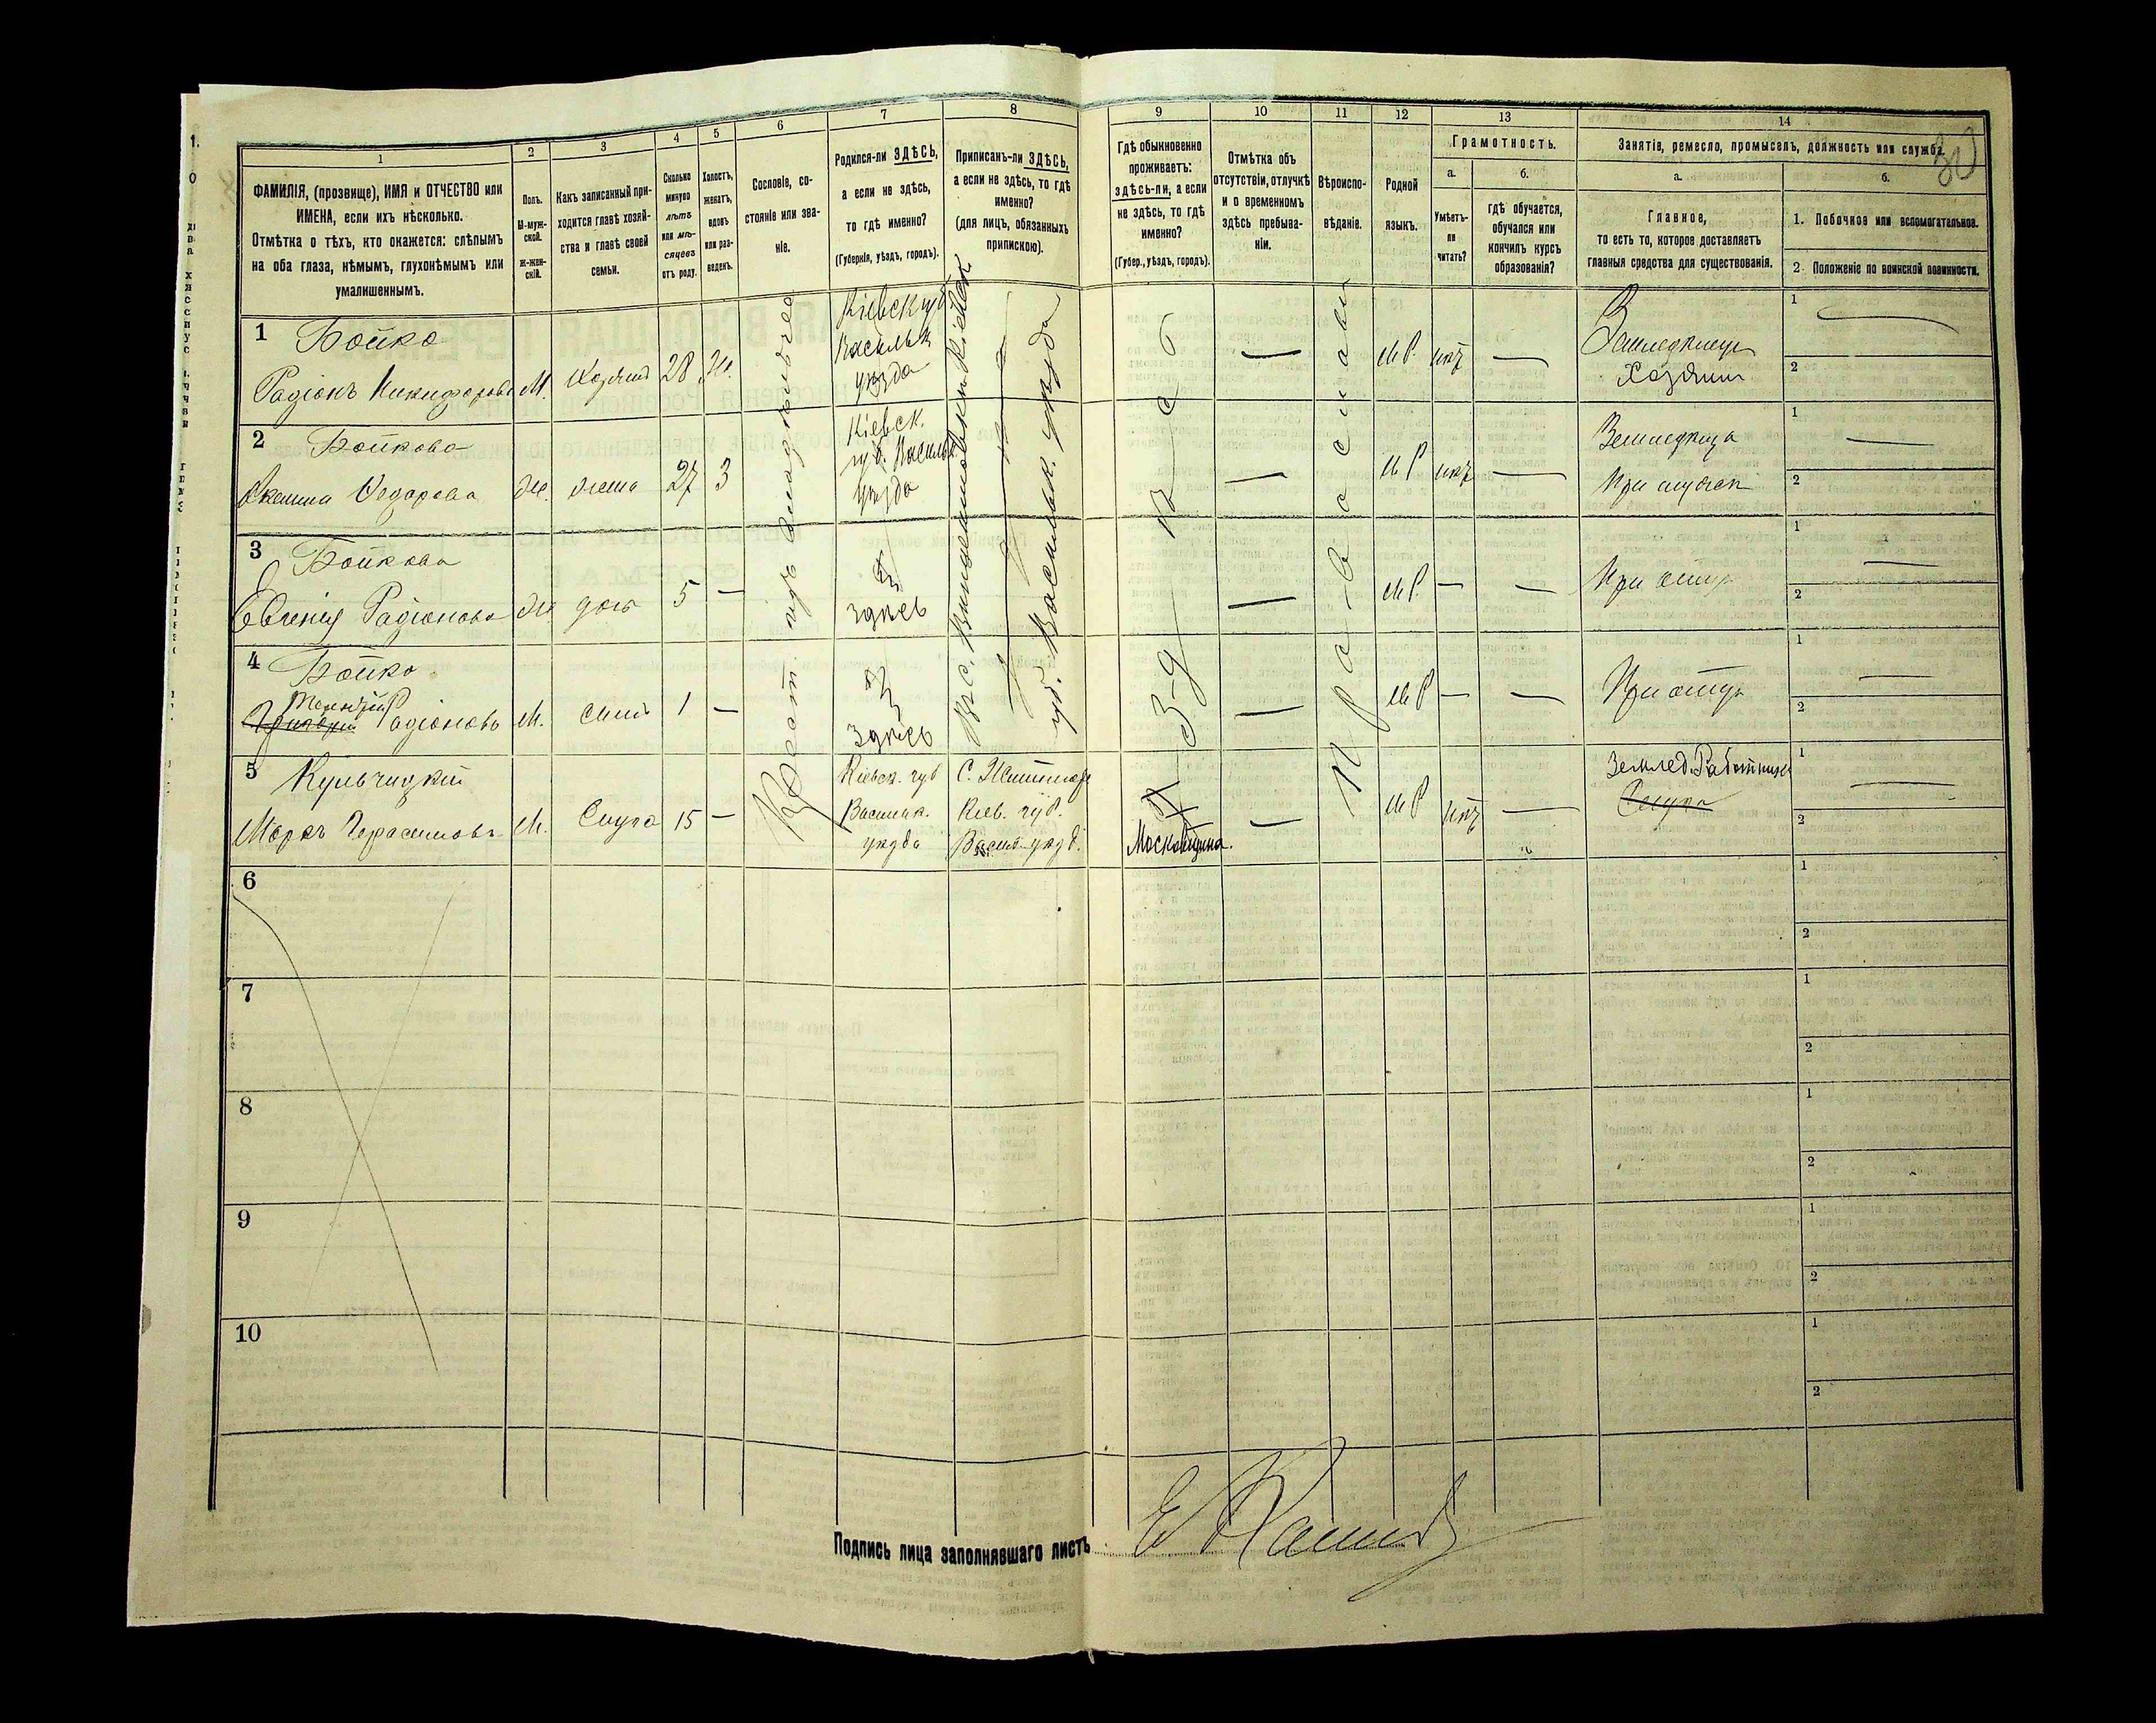 30
1
ФАМИЛІЯ, (прозвище), ИМЯ и ОТЧЕСТВО или
ИМЕНА, если ихъ нѣсколько.
Отмѣтка о тѣхъ, кто окажется: слѣпымъ
на оба глаза, нѣмымъ, глухонѣмымъ или
умалишеннымъ.
2
Полъ.
М-муж-
ской.
Ж-жен-
скій.
3
Какъ записанный при-
ходится главѣ хозяй-
ства и главѣ своей
семьи.
4
Сколько
минуло
лѣтъ
или мѣ-
сяцевъ
отъ роду.
5
Холостъ,
женатъ,
вдовъ
или раз-
веденъ.
6
Сословіе, со-
стояніе или зва-
ніе.
7
Родился-ли ЗДѢСЬ,
а если не здѣсь,
то гдѣ именно?
(Губернія, уѣздъ, городъ).
8
Приписанъ-ли ЗДѢСЬ,
а если не здѣсь, то гдѣ
именно?
(для лицъ, обязанныхъ
припискою).
9
Гдѣ обыкновенно
проживаетъ:
здѣсь-ли, а если
не здѣсь, то гдѣ
именно?
(Губер., уѣздъ, городъ).
10
Отмѣтка объ
отсутствіи, отлучкѣ
и о временномъ
здѣсь пребыва-
ніи.
11
Вѣроиспо-
вѣданіе.
12
Родной
языкъ.
13
Грамотность.
а.
Умѣетъ-
ли
читать?
б.
гдѣ обучается,
обучался или
кончилъ курсъ
образованія?
14
Занятіе, ремесло, промыселъ, должность или служба.
а.
Главное,
то есть то, которое доставляетъ
главныя средства для существованія.
б.
1. Побочное или вспомогательное.
2 Положеніе по воинской повинности.
1 Бойко
Радіонъ Никифоровъ М. Хозяинъ 28 Ж.
Кіевск губ
Васильк
уѣзда
— М Р. нѣтъ —
Земледѣлец
Хозяин
1 —
2
2 Бойкова
Аксинья Федорова Ж. жена 27 З
Кіевск.
губ. Васильк
уѣзда
— М Р нѣтъ —
Земледѣлца
При мужѣ
1 —
2
3 Бойкова
Евгенія Радіонова Ж дочь 5 —
здѣсь
— М Р. — —
При отцѣ
1 —
2
4 Бойко
Григорій Радіоновъ М. сынъ 1 —
Здѣсь
— М Р — —
При отцѣ
1 —
2
5 Кульчицкій
Маркъ Герасимовъ М. Слуга 15 —
Кіевск. губ
Васильк.
уѣзда
Кіев. губ.
Васил. уѣзд.
Московщина.
— М Р нѣтъ —
Землед. Работникъ
Слуга
1 —
2
Крест. изъ владѣльчес
губ. Васильк. уѣзда
Здѣсь
Православн
6
1
2
7
1
2
8
1
2
9
1
2
10
1
2
Подпись лица заполнявшаго листъ